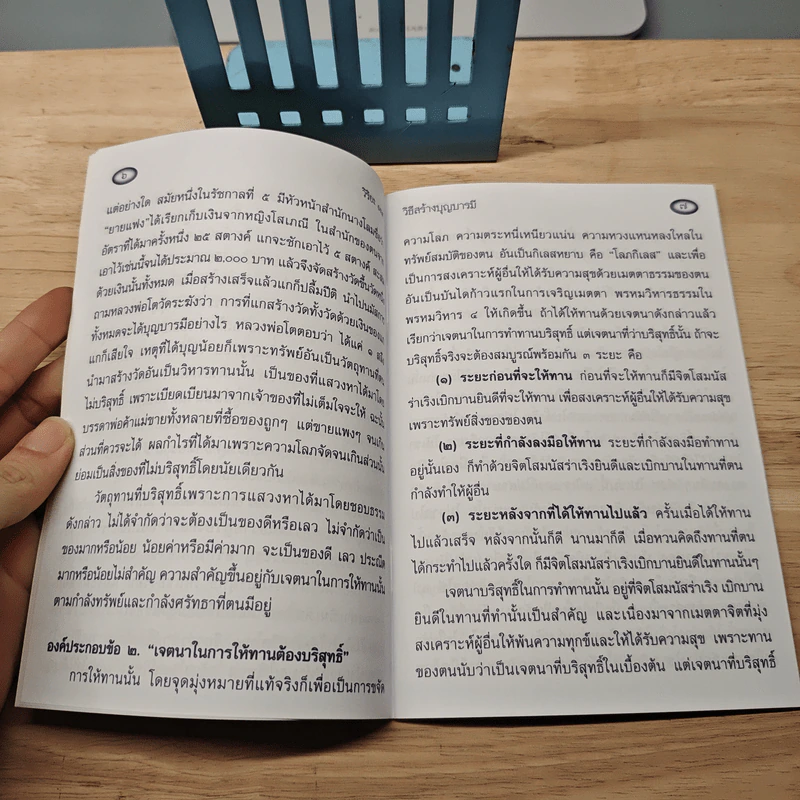 ๖
วิธีสร้าง
แต่อย่างใด สมัยหนึ่งในรัชกาลที่ ๕ มีหัวหน้าสำนักนางโลมชื่อ
"ยายแฟง"ได้เรียกเก็บเงินจากหญิงโสเภณี ในสำนักของตน
อัตราที่ได้มาครั้งหนึ่ง ๒๕ สตางค์ แกจะชักเอาไว้ ๕ สตางค์ สะสม
เอาไว้เช่นนี้จนได้ประมาณ ๒,๐๐๐ บาท แล้วจึงจัดสร้างวัดขึ้นวัดหนึ่ง
ด้วยเงินนั้นทั้งหมด เมื่อสร้างเสร็จแล้วแกก็ปลื้มปีติ นำไปนมัสการ
ถามหลวงพ่อโตวัดระฆังว่า การที่แกสร้างวัดทั้งวัดด้วยเงินของแก
ทั้งหมดจะได้บุญบารมีอย่างไร หลวงพ่อโตตอบว่า ได้แค่ ๑ สลึง
แกก็เสียใจ เหตุที่ได้บุญน้อยก็เพราะทรัพย์อันเป็นวัตถุทานที่ตน
นำมาสร้างวัดอันเป็นวิหารทานนั้น เป็นของที่แสวงหาได้มาโดย
ไม่บริสุทธิ์ เพราะเบียดเบียนมาจากเจ้าของที่ไม่เต็มใจจะให้ ฉะนั้น
บรรดาพ่อค้าแม่ขายทั้งหลายที่ซื้อของถูกๆ แต่ขายแพงๆ จนเกิน
ส่วนที่ควรจะได้ ผลกำไรที่ได้มาเพราะความโลภจัดจนเกินส่วนนั้น
ย่อมเป็นสิ่งของที่ไม่บริสุทธิ์โดยนัยเดียวกัน
วัตถุทานที่บริสุทธิ์เพราะการแสวงหาได้มาโดยชอบธรรม
ดังกล่าว ไม่ได้จำกัดว่าจะต้องเป็นของดีหรือเลว ไม่จำกัดว่าเป็น
ของมากหรือน้อย น้อยค่าหรือมีค่ามาก จะเป็นของดี เลว ประณีต
มากหรือน้อยไม่สำคัญ ความสำคัญขึ้นอยู่กับเจตนาในการให้ทานนั้น
ตามกำลังทรัพย์และกำลังศรัทธาที่ตนมีอยู่
องค์ประกอบข้อ ๒. "เจตนาในการให้ทานต้องบริสุทธิ์"
การให้ทานนั้น โดยจุดมุ่งหมายที่แท้จริงก็เพื่อเป็นการขจัด
วิธีสร้างบุญบารมี
๗
ความโลภ ความตระหนี่เหนียวแน่น ความหวงแหนหลงใหลใน
ทรัพย์สมบัติของตน อันเป็นกิเลสหยาบ คือ "โลภกิเลส" และเพื่อ
เป็นการสงเคราะห์ผู้อื่นให้ได้รับความสุขด้วยเมตตาธรรมของตน
อันเป็นบันไดก้าวแรกในการเจริญเมตตา พรหมวิหารธรรมใน
พรหมวิหาร ๔ ให้เกิดขึ้น ถ้าได้ให้ทานด้วยเจตนาดังกล่าวแล้ว
เรียกว่าเจตนาในการทำทานบริสุทธิ์ แต่เจตนาที่ว่าบริสุทธิ์นั้น ถ้าจะ
บริสุทธิ์จริงจะต้องสมบูรณ์พร้อมกัน ๓ ระยะ คือ
(๑) ระยะก่อนที่จะให้ทาน ก่อนที่จะให้ทานก็มีจิตโสมนัส
ร่าเริงเบิกบานยินดีที่จะให้ทาน เพื่อสงเคราะห์ผู้อื่นให้ได้รับความสุข
เพราะทรัพย์สิ่งของของตน
(๒) ระยะที่กำลังลงมือให้ทาน ระยะที่กำลังลงมือทำทาน
อยู่นั้นเอง ก็ทำด้วยจิตโสมนัสร่าเริงยินดีและเบิกบานในทานที่ตน
กำลังทำให้ผู้อื่น
(๓) ระยะหลังจากที่ได้ให้ทานไปแล้ว ครั้นเมื่อได้ให้ทาน
ไปแล้วเสร็จ หลังจากนั้นก็ดี นานมาก็ดี เมื่อหวนคิดถึงทานที่ตน
ได้กระทำไปแล้วครั้งใด ก็มีจิตโสมนัสร่าเริงเบิกบานยินดีในทานนั้นๆ
เจตนาบริสุทธิ์ในการทำทานนั้น อยู่ที่จิตโสมนัสร่าเริง เบิกบาน
ยินดีในทานที่ทำนั้นเป็นสำคัญ และเนื่องมาจากเมตตาจิตที่มุ่ง
สงเคราะห์ผู้อื่นให้พ้นความทุกข์และให้ได้รับความสุข เพราะทาน
ของตนนับว่าเป็นเจตนาที่บริสุทธิ์ในเบื้องต้น แต่เจตนาที่บริสุทธิ์